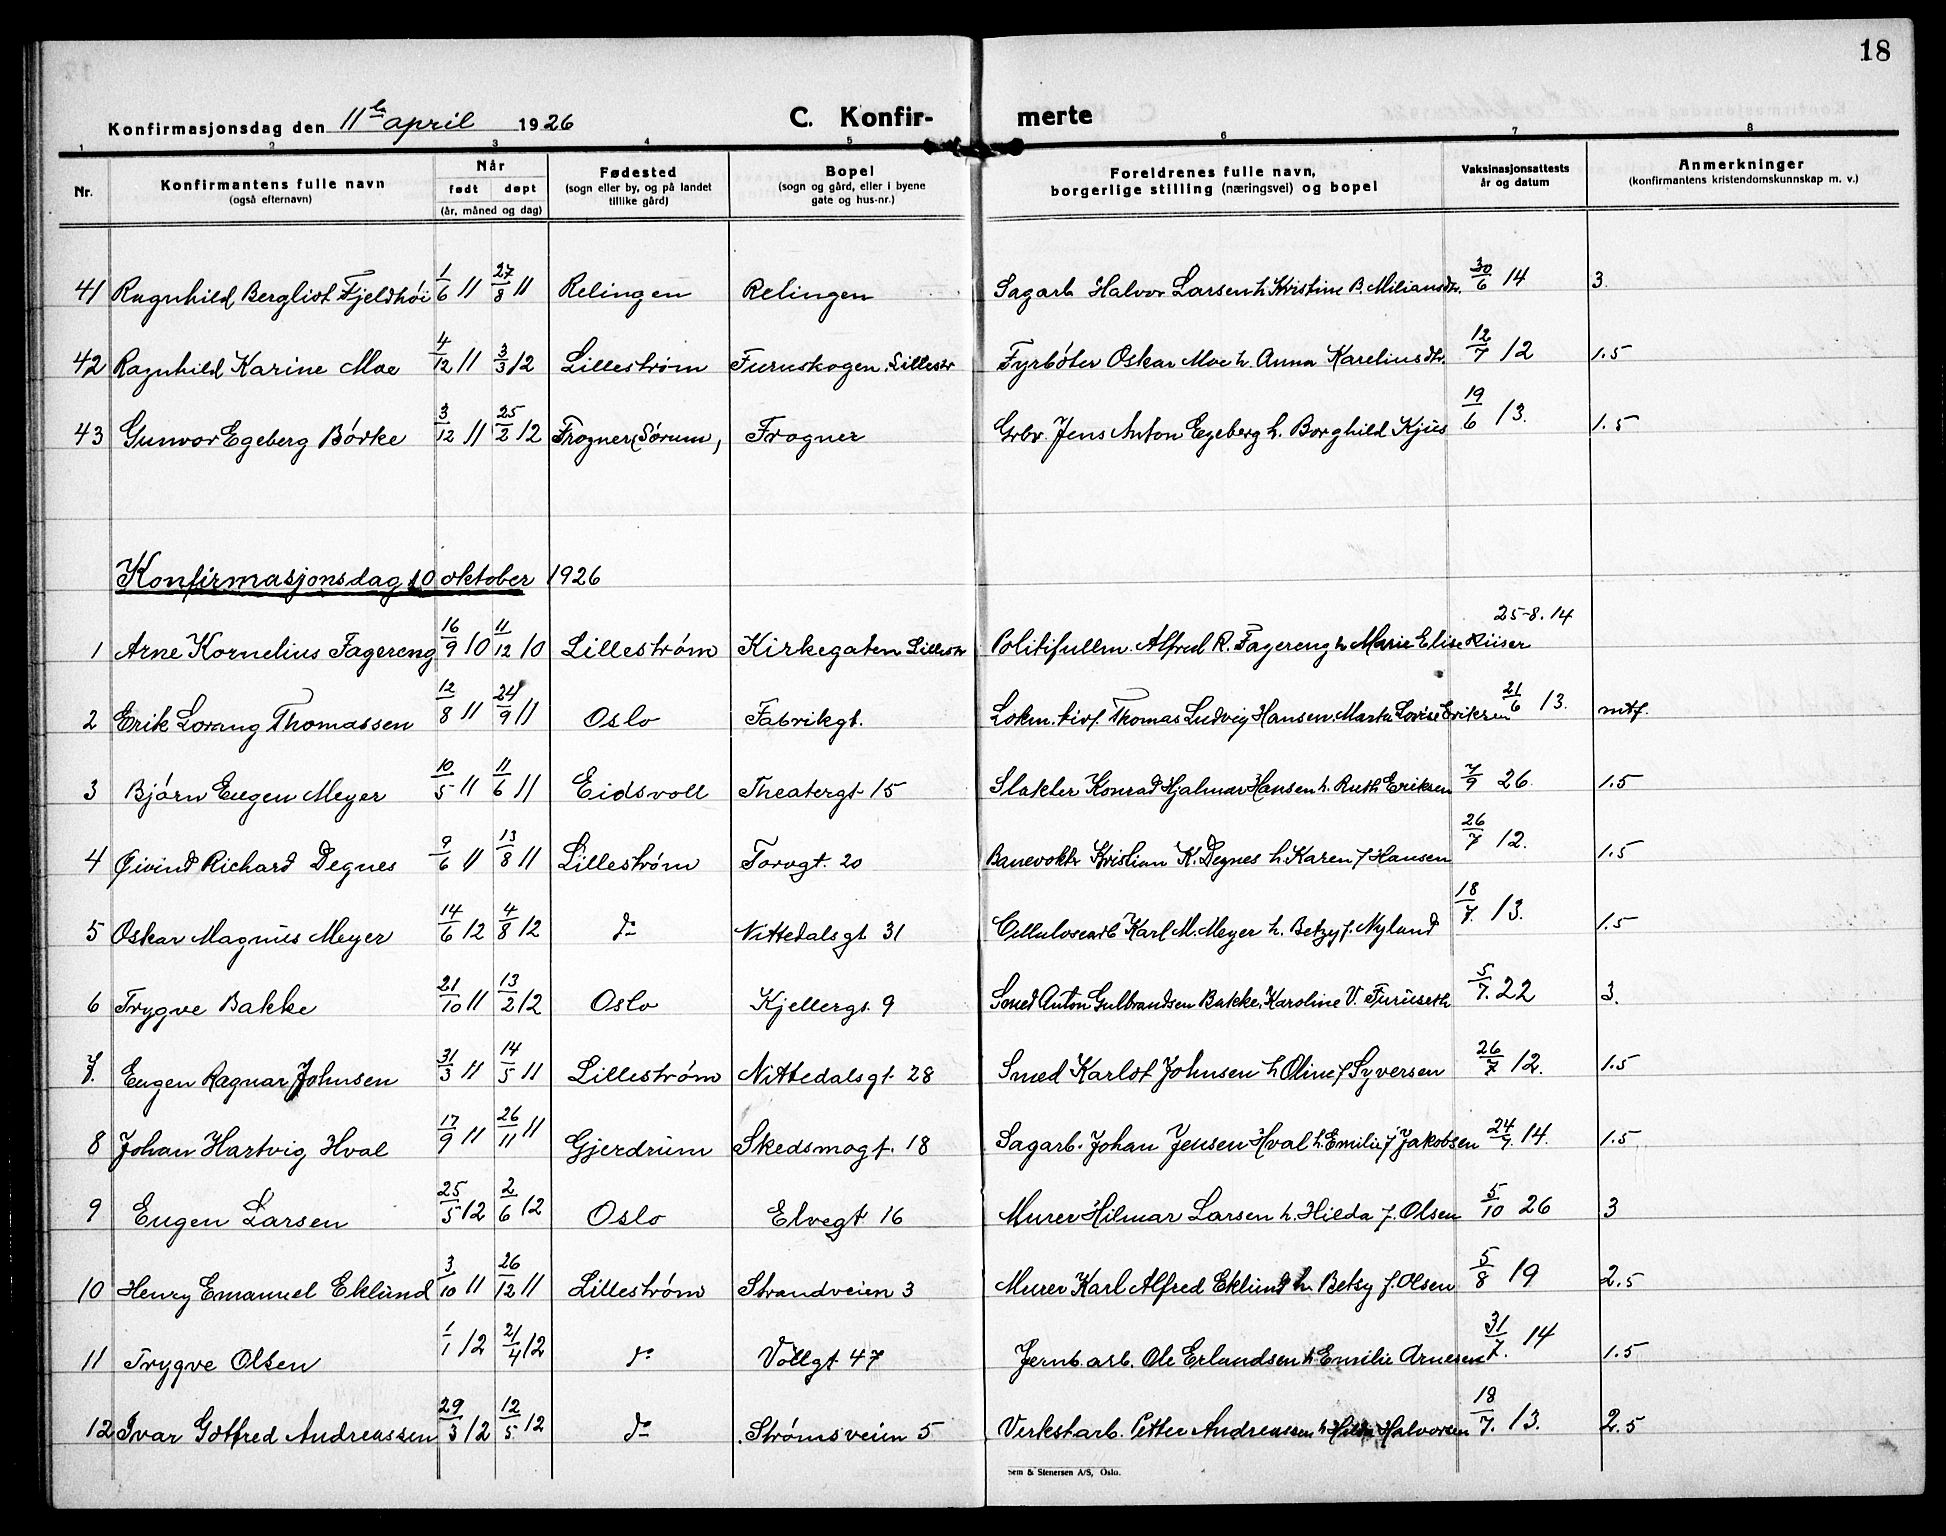 18
Konfirmasjonsdag den 11te april 1926
C. Konfir- merte
1 2 3 4 5 6 7 8
Nr. Konfirmantens fulle navn (også efternavn) Når født døpt (år, måned og dag) Fødested (sogn eller by, og på landet tillike gård) Bopel (sogn og gård, eller i byene gate og hus-nr.) Foreldrenes fulle navn, borgerlige stilling (næringsvei) og bopel Vaksinasjonsattests år og datum Anmerkninger (konfirmantens kristendomskunnskap m. v.)
41 Ragnhild Bergliot Fjeldhøi 1/6 11 27/8 11 Relingen Relingen Sagarb. Halvor Larsen h. Kristine B. Miliansdtr. 30/6 14 3
42 Ragnhild Karine Moe 4/12 11 3/3 12 Lillestrøm Furuskogen, Lillestr Fyrbøter Oskar Moe h. Anna Kareliusdtr. 12/7 12 1.5
43 Gunvor Egeberg Børke 3/12 11 25/2 12 Frogner (Sørum) Frogner Grbr. Jens Anton Egeberg h. Borghild Kjus 19/6 13. 1.5
Konfirmasjonsdag 10 oktober 1926
1 Arne Kornelius Fagereng 16/9 10 11/12 10 Lillestrøm Kirkegaten Lillestr Politifullm. Alfred R. Fagereng h. Marie Elise Riiser 25-8.14
2 Erik Lorang Thomassen 12/8 11 24/9 11 Oslo Fabrikgt. Lokm. Thomas Ludvig Hansen. Marta Lovise Eriksen 21/6 13. mtf.
3 Bjørn Eugen Meyer 10/5 11 11/6 11 Eidsvoll Theatergt 15 Slakter Konrad Hjalmar Hansen h. Ruth Eriksen 7/9 26. 1.5
4 Øivind Richard Degnes 9/6 11 13/8 11 Lillestrøm Torvgt. 20 Banevoktr Kristian K. Degnes h. Karen f Hansen 26/7 12. 1.5
5 Oskar Magnus Meyer 14/6 12 4/8 12 do Nittedalsgt 31 Cellulosearb Karl M. Meyer h. Betzy f. Nylund 18/7. 13. 1.5
6 Trygve Bakke 21/10 11 13/2 12 Oslo Kjellergt. 9 Smed Anton Gulbrandsen Bakke, Karoline V. Furuseth 5/7. 22 3.
7. Eugen Ragnar Johnsen 31/3 11 14/5 11 Lillestrøm Nittedalsgt. 28 Smed Karlot Johnsen h Oline f Syversen 26/7 12. 1.5
8 Johan Hartvig Hval 17/9 11 26/11 11 Gjerdrum Skedsmogt. 18 Sagarb. Johan Jensen Hval h. Emilie f Jakobsen 24/7. 14. 1.5
9 Eugen Larsen 25/5 12 2/6 12 Oslo Elvegt 16 Murer Hilmar Larsen h. Hilda f. Olsen 5/10 26 3
10 Henry Emanuel Eklund 3/10 11 26/12 11 Lillestrøm Strandveien 3 Murer Karl Alfred Eklund h. Betsy f. Olsen 5/8 19 2.5
11 Trygve Olsen 1/1 12 21/4 12 do Vollgt 47 Jernb. arb. Ole Erlandsen h Emilie Arnesen 31/7. 14 1.5
12 Ivar Gotfred Andreassen 29/3 12 12/5 12 do Strømsveien 5 Verkstarb. Petter Andreassen h Hilda Halvorsen 18/7. 13. 2.5
Sem & Stenersen A/S, Oslo.